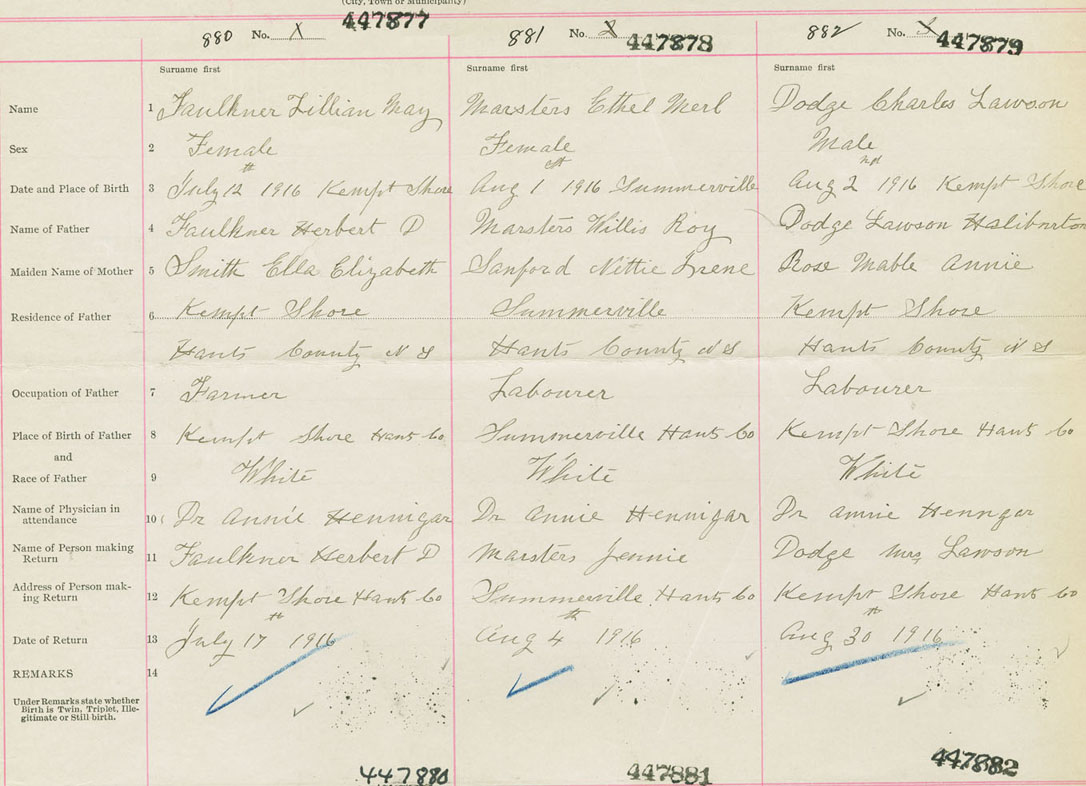 (City, Town or Municipality)
447877
880 No. 1
881 No. 2 447878
882 No. 3 447879
Surname first Surname first Surname first
Name 1 Faulkner Lillian May Marsters Ethel Merl Dodge Charles Lawson
Sex 2 Female Female Male
Date and Place of Birth 3 July 12th 1916 Kempt Shore Aug 1st 1916 Summerville Aug 2nd 1916 Kempt Shore
Name of Father 4 Faulkner Herbert D Marsters Willis Roy Dodge Lawson Haliburton
Maiden Name of Mother 5 Smith Ella Elizabeth Sanford Nettie Irene Rose Mable Annie
Residence of Father 6 Kempt Shore Summerville Kempt Shore
Hants County N S Hants County N S Hants County N S
Occupation of Father 7 Farmer Labourer Labourer
Place of Birth of Father 8 Kempt Shore Hants Co Summerville Hants Co Kempt Shore Hants Co
and
Race of Father 9 White White White
Name of Physician in
attendance 10 Dr Annie Hennigar Dr Annie Hennigar Dr Annie Henngar
Name of Person making
Return 11 Faulkner Herbert D Marsters Jennie Dodge Mrs Lawson
Address of Person mak-
ing Return 12 Kempt Shore Hants Co Summerville Hants Co Kempt Shore Hants Co
Date of Return 13 July 17th 1916 Aug 4th 1916 Aug 30th 1916
REMARKS 14
Under Remarks state whether
Birth is Twin, Triplet, Ille-
gitimate or Still birth.
447880 447881 447882